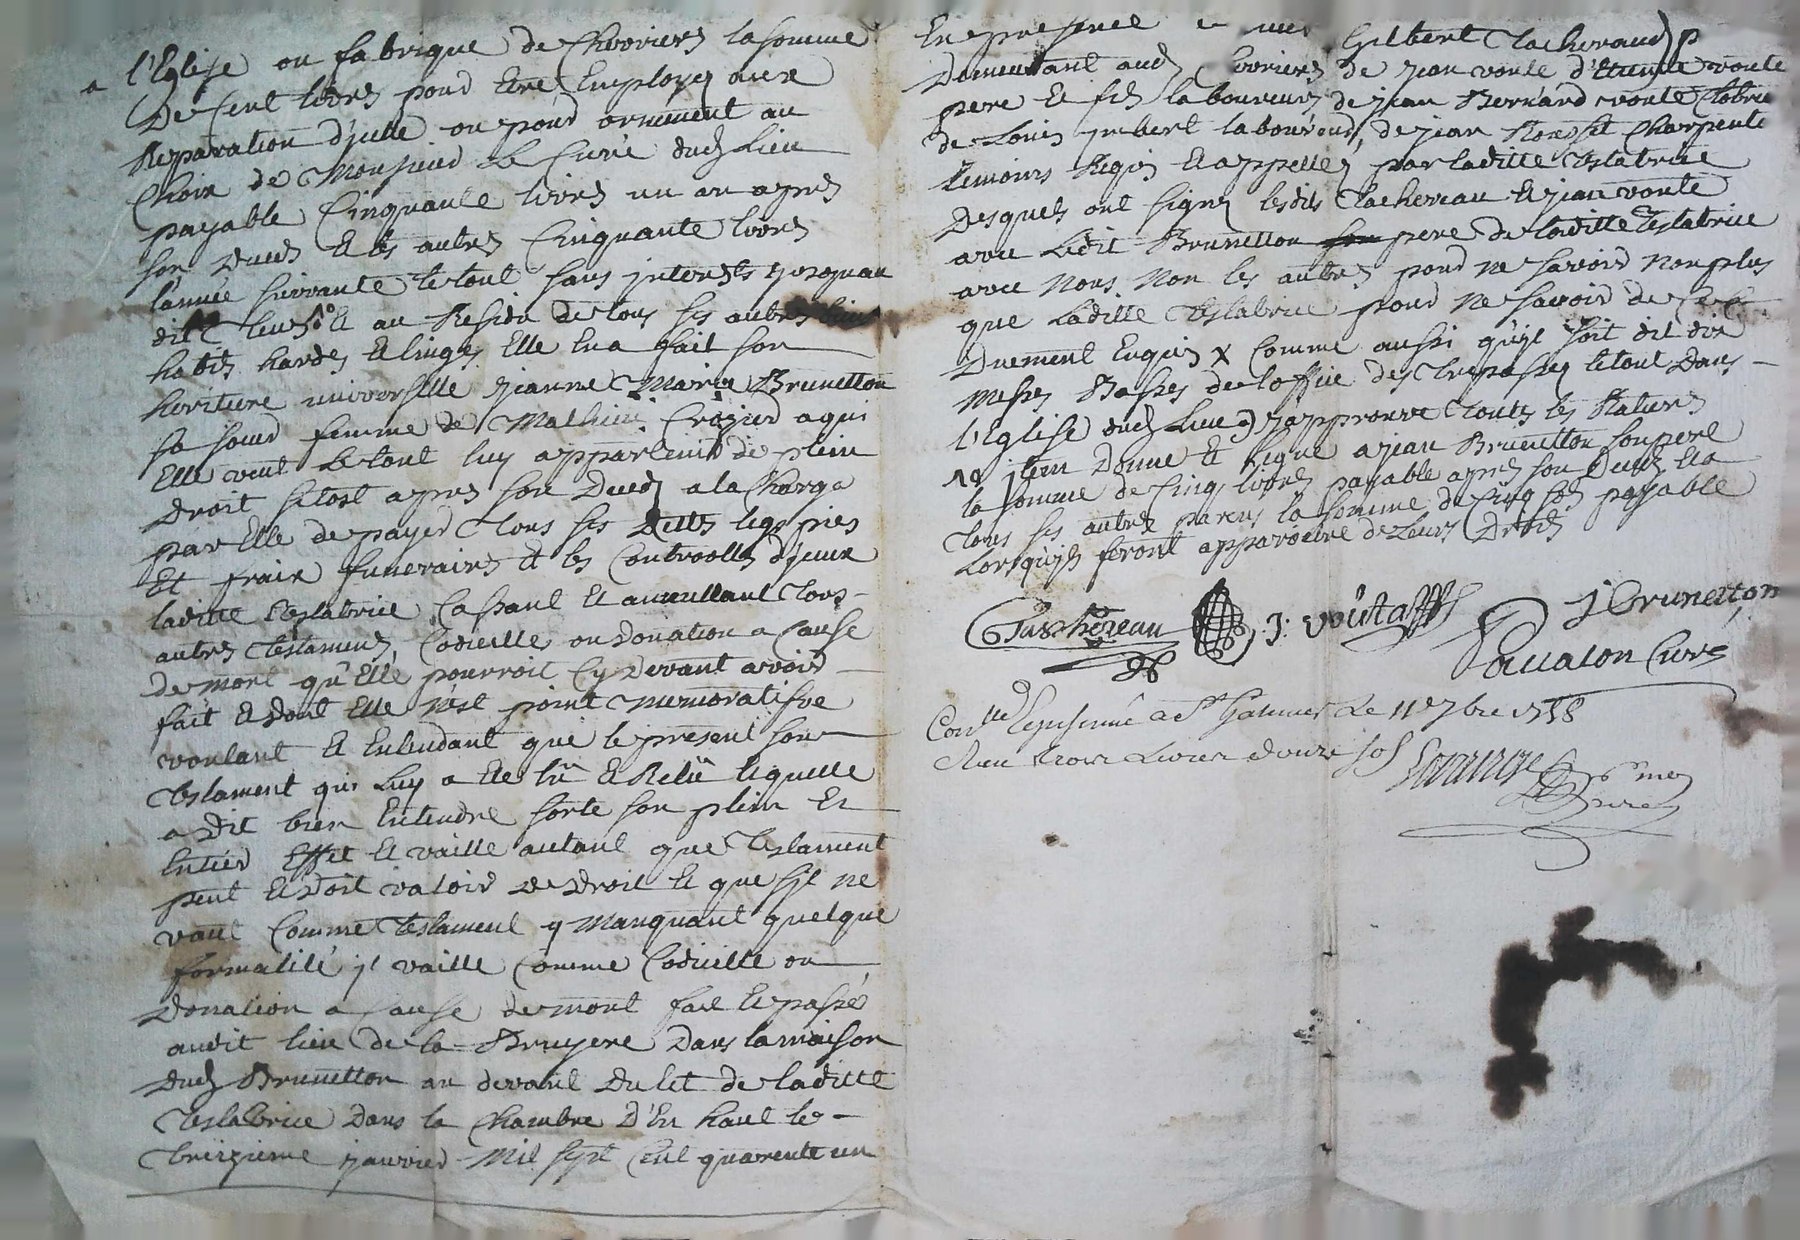 a l'Eglise ou fabrique de Chevrieres la somme
De Cent livres pour Etre Employez aux
Reparation d'jcelle ou pour ornement au
Choix de Monsieur Le Curé dud Lieu
payable Cinquante livres un an apres
son Deced Et les autres Cinquante livres
l'année suivante le tout sans jnterests jusquau
dit et au Residu de tous ses autres biens
habits hardes Et linges Elle En a fait son
heritiere universelle jeanne Marie Brunetton
sa soeur femme de Mathieu Crozier a qui
Elle veut Le tout luy appartenir de plein
Droit sitost apres son Deced a la Charge
par Elle de payer tous ses Dettes legs pies
Et fraix funeraires Et les Controolles d'jceux
laditte Testatrice Cassant Et annullant tous
autres Testaments, Codicille ou donation a Cause
de mort qu'Elle pourroit Cy Devant avoir
fait Et dont Elle n'est point memoratisve
voulant Et Entendant que le present son
Testament qui Luy a Eté lû Et Relû lequelle
a Dit bien Entendre sorte son plein Et
Entier Effet Et vaille autant que Testament
peut Et Doit valoir de Droit Et que s'jl ne
vaut Comme Testament y Manquant quelque
formalité jl vaille Comme Codicille ou
Donation a Cause de mort fait Et passé
audit lieu de la Bruyere Dans la maison
dud Brunetton au devant du let de laditte
Testatrice Dans la Chambre d'En haut le
treizieme janvier Mil sept Cent quarente un
En presence Gilbert Tachereaud
Demeurant aud Chevrieres de jean voute d'Etienne voute
pere Et fils laboureurs de jean Bernard voute
de Louis jmbert laboureur, de jean Charpente
temoins Requis Et appellez par laditte Testatrice
Desquels ont signez lesdits Tachereau Et jean voute
avec Ledit Brunetton son pere de laditte Testatrice
avec Nous Non les autres pour ne savoir Non plus
que Laditte Testatrice pour ne savoir de Ce
Duement Enquis x Comme aussi qu'jl soit dit dix
Messes Basses de l'office des trepassez le tout Dans
l'Eglise dud Lieu j'approuve toutes les Ratures
jtem Donne Et legue a jean Brunetton son pere
la somme de Cinq livres payable apres son Deced Et a
tous ses autres parens la somme de Cinq sols payable
Lorsqu'jls feront apparoitre de Leurs Droits
G Taschereau J: voûta jBrunetton
Curé
Con.lle Et Insinué a St Galmier Le 11e 7bre 1758
Reçu trois Livres douze sols